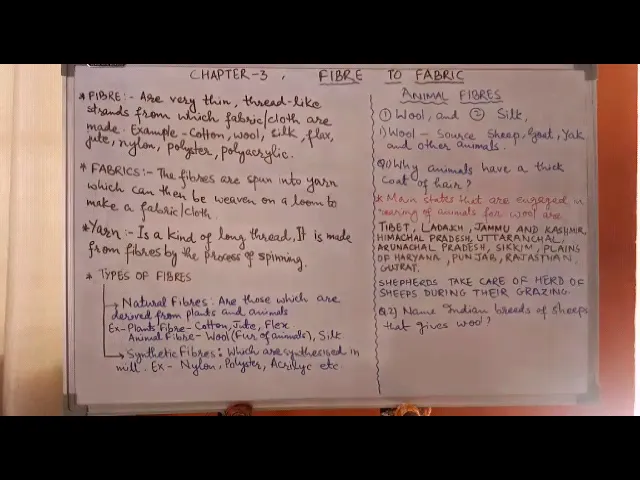 CHAPTER-3, FIBRE TO FABRIC
* FIBRE:- Are very thin, thread-like
strands from which fabric/cloth are
made. Example - Cotton, wool, silk, flax,
jute, nylon, polyster, polyacrylic.
* FABRICS:- The fibres are spun into yarn
which can then be weaven on a loom to
make a fabric/cloth.
* Yarn:- Is a kind of long thread, It is made
from fibres by the process of spinning.
* TYPES OF FIBRES
Natural Fibres: Are those which are
derived from plants and animals
Ex- Plants Fibre - Cotton, Jute, Flex
Animal Fibre - Wool (Fur of animals), Silk
Synthetic Fibres: Which are synthesised in
mill. Ex - Nylon, Polyster, Acrilyc etc.
ANIMAL FIBRES
① Wool, and ② Silk,
1) Wool - Source Sheep, Goat, Yak
and other animals.
Q1) Why animals have a thick
Coat of hair?
* Main states that are engaged in
rearing of animals for wool are
TIBET, LADAKH, JAMMU AND KASHMIR,
HIMACHAL PRADESH, UTTARANCHAL,
ARUNACHAL PRADESH, SIKKIM, PLAINS
OF HARYANA, PUNJAB, RAJASTHAN,
GUJRAT.
SHEPHERDS TAKE CARE OF HERD OF
SHEEPS DURING THEIR GRAZING.
Q.2) Name Indian breeds of sheeps
that gives wool?